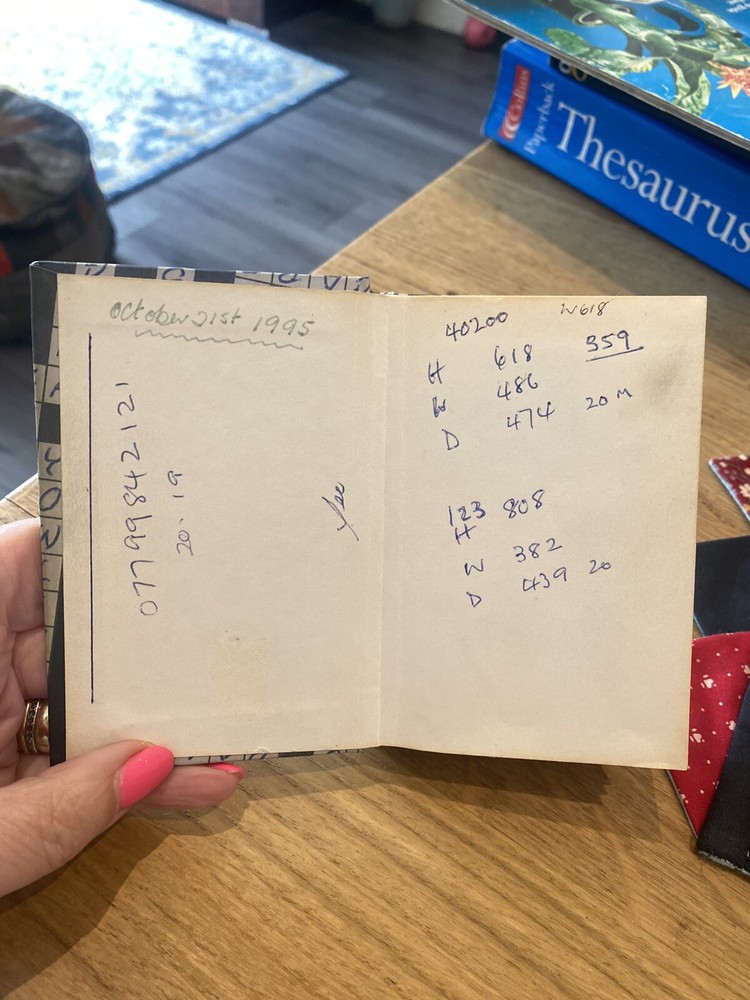 Collins
Paperback
Thesaurus
october 21st 1995
07799842121
20.19
40200 W618
H 618 359
W 486
D 474 20 M
123 808
H
W 382
D 439 20